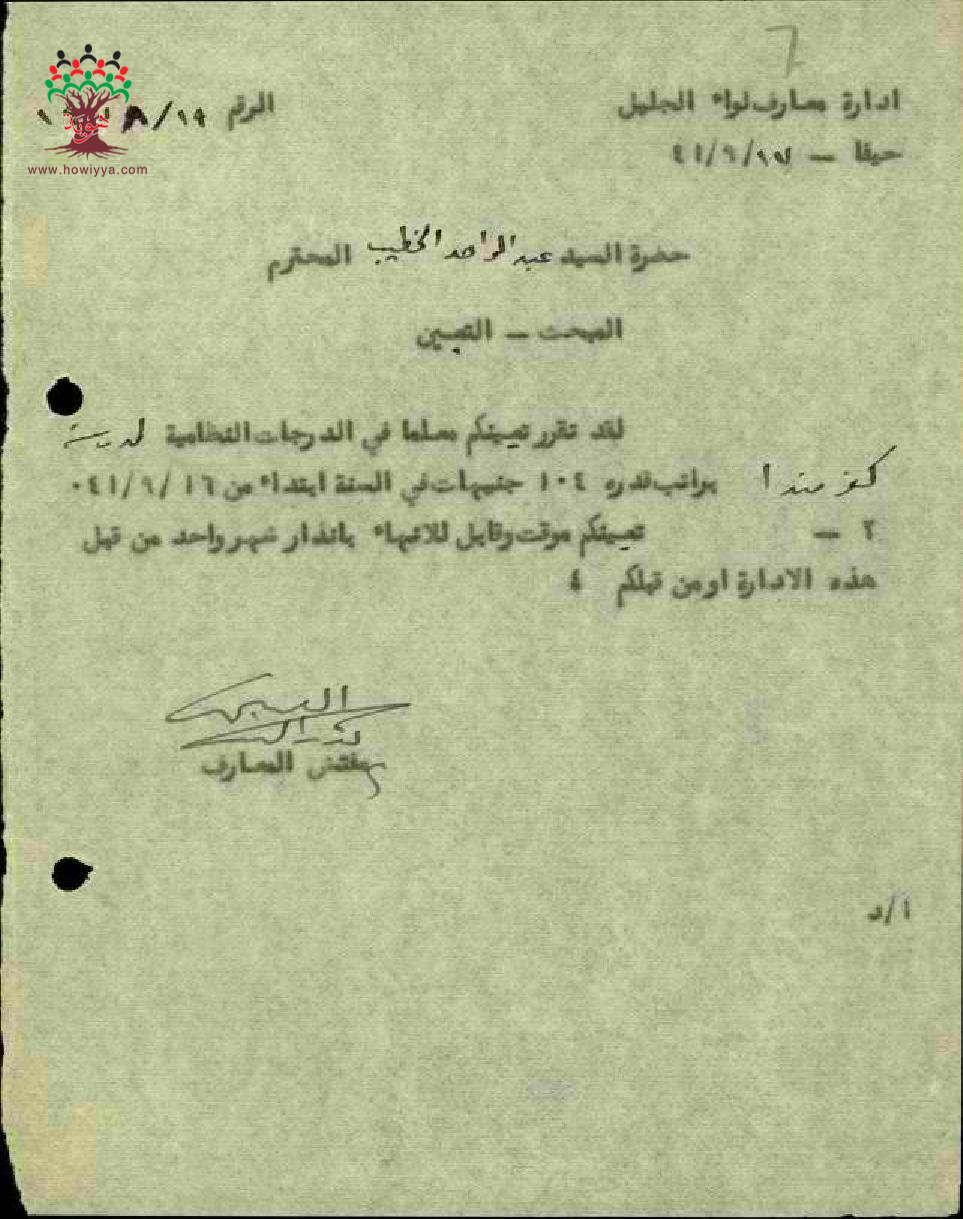 7
ادارة معارف لواء الجليل
الرقم ١٩/٨
حيفا — ١٧/٩/٤١
www.howiyya.com
حضرة السيد عبد الواحد الخطيب المحترم
المبحث — التعيين
لقد تقرر تعيينكم معلما في الدرجات النظامية لمدرسة
كفر مندا براتب قدره ١٠٤ جنيهات في السنة ابتداء من ١٦/٩/٤١٠
٢ — تعيينكم موقت وقابل للانهاء بانذار شهر واحد من قبل
هذه الادارة او من قبلكم ٤
مفتش المعارف
ا/د